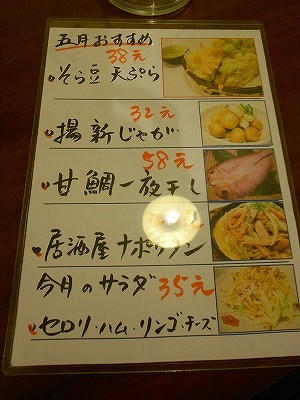 五月おすすめ
38元
そら豆 天ぷら
32元
揚 新じゃが
58元
甘鯛一夜干し
居酒屋 ナポリタン
今月のサラダ 35元
セロリ・ハム・リンゴ・チーズ